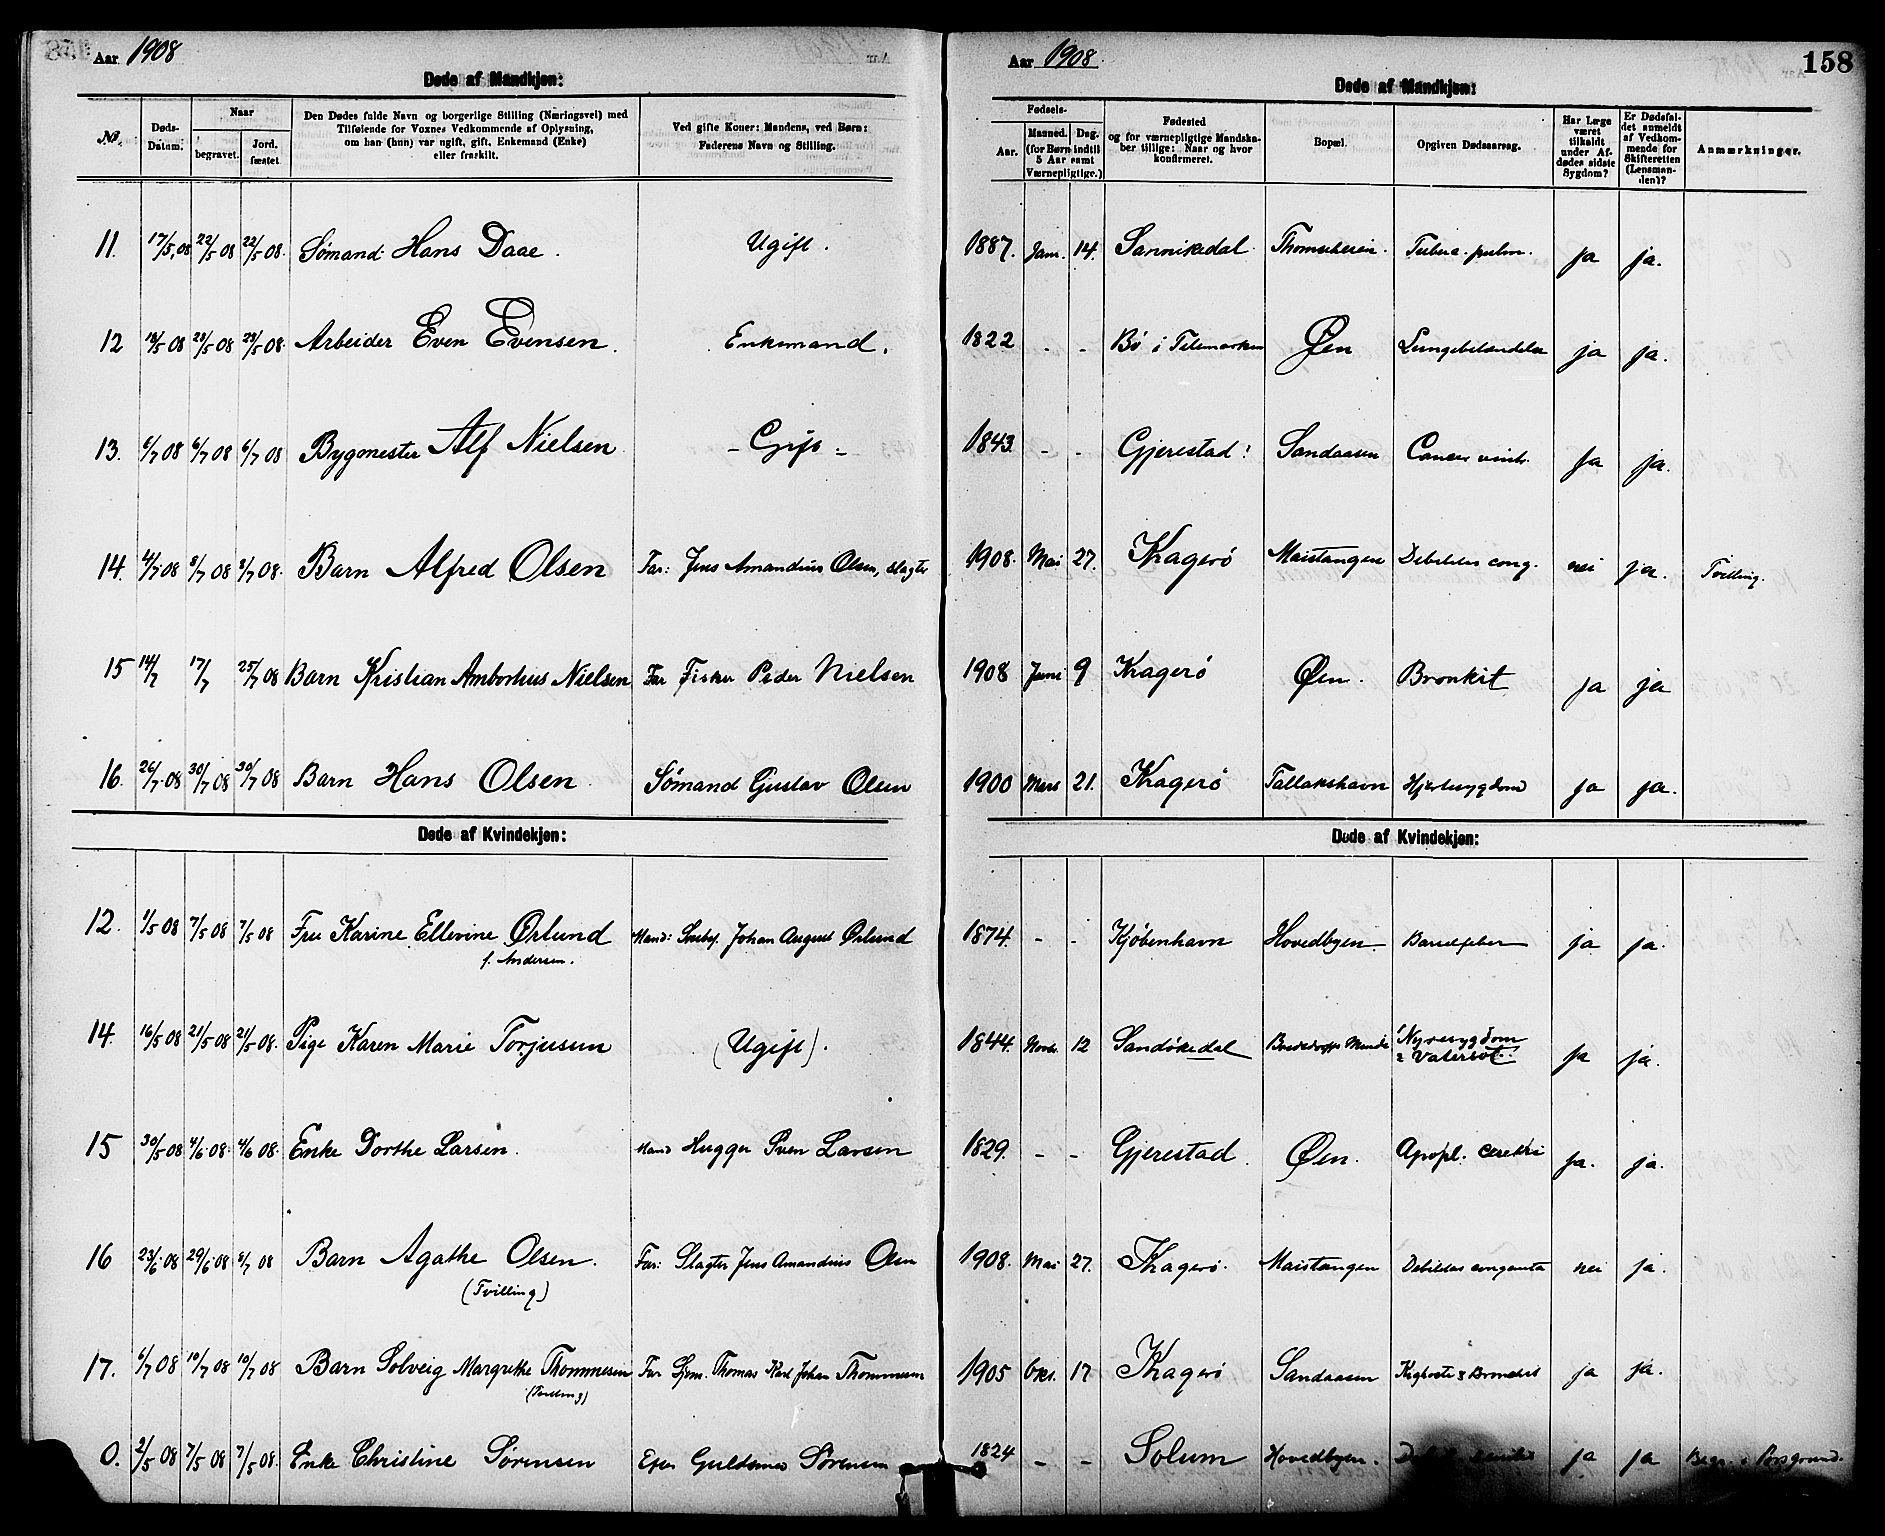 Aar 1908
Døde af Mandkjøn:
No.
Døds-Datum.
Naar
begravet.
Jord-fæstet
Den Dødes fulde Navn og borgerlige Stilling (Næringsvei) med
Tilføiende for Voxnes Vedkommende af Oplysning,
om han (hun) var ugift, gift, Enkemand (Enke)
eller fraskilt.
Ved gifte Koner: Mandens, ved Børn:
Faderens Navn og Stilling.
Aar 1908.
158
Døde af Mandkjøn:
Fødsels-
Aar.
Maaned. Dag.
(for Børn indtil
5 Aar samt
Værnepligtige.)
Fødested
og for værnepligtige Mandska-
ber tillige: Naar og hvor
konfirmeret.
Bopæl.
Opgiven Dødsaarsag.
Har Læge
været
tilkaldt
under Af-
dødes sidste
Sygdom?
Er Dødsfal-
det anmeldt
af Vedkom-
mende for
Skifteretten
(Lensman-
den)?
Anmærkninger.
11. 17/5 08 22/5 08 22/5 08. Sømand Hans Daae. Ugift. 1887. Jan. 14. Sannikedal Tuberc. pulm. ja ja.
12 18/5 08 Arbeider Even Evensen. Enkemand. 1822 - - Bø i Telemarken Øen Lungebetændelse ja ja.
13. 6/7 08 6/7 08 Bygmester Alf Nielsen - Gift - 1843 - - Gjerestad Sandaasen Cancer ventr. ja ja.
14. 4/7 08 8/7 08 8/7 08. Barn Alfred Olsen Far: Jens Amandius Olsen, slagter 1908. Mai 27. Kragerø Maistangen Debilitas cong. nei ja. Tvilling.
15 14/7 17/7 25/7 08 Barn Kristian Nielsen Far Fisker Peder Nielsen 1908 Juni 9 Kragerø Øen. Bronkit ja ja
16. 26/7 08 30/7 08 30/7 08 Barn Hans Olsen. Sømand Gustav Olsen 1900 Mars 21. Kragerø Tallakshavn Hjertesygdom ja ja.
Døde af Kvindekjøn:
Døde af Kvindekjøn:
12. 1/5 08 7/5 08 7/5 08 Fru Karine Ellevine Ørlund
f. Andersen.
Mand: Johan August Ørlund 1874 - - Kjøbenhavn Hovedbyen Barselfeber ja ja.
14. 16/5 08 21/5 08 21/5 08. Pige Karen Marie Torjusen (Ugift). 1844. Novbr. 12 Sandøkedal Nyresygdom
& Vatersot. ja ja.
15 30/5 08 4/6 08. 4/6 08. Enke Dorthe Larsen. Mand Hugger Sven Larsen 1829. - - Gjerestad. Øen. Apopl. cerebri ja. ja.
16 23/6 08 29/6 08 8/7 08 Barn Agathe Olsen.
(Tvilling)
Far: Slagter Jens Amandius Olsen 1908. Mai 27. Kragerø. Maistangen Debilitas congenita nei ja.
17. 6/7 08 10/7 08 10/7 08 Barn Solveig Margrethe Thommesen
(Tvilling)
Far Sjøm. Thomas Karl Johan Thommesen 1905 Okt. 17 Kragerø Sandaasen Kighoste & Bronchit ja ja.
0. 2/5 08 7/5 08 7/5 08 Enke Christine Sørensen Sørensen 1824 - - Solum Hovedbyen. ja ja Begr. i Porsgrund.